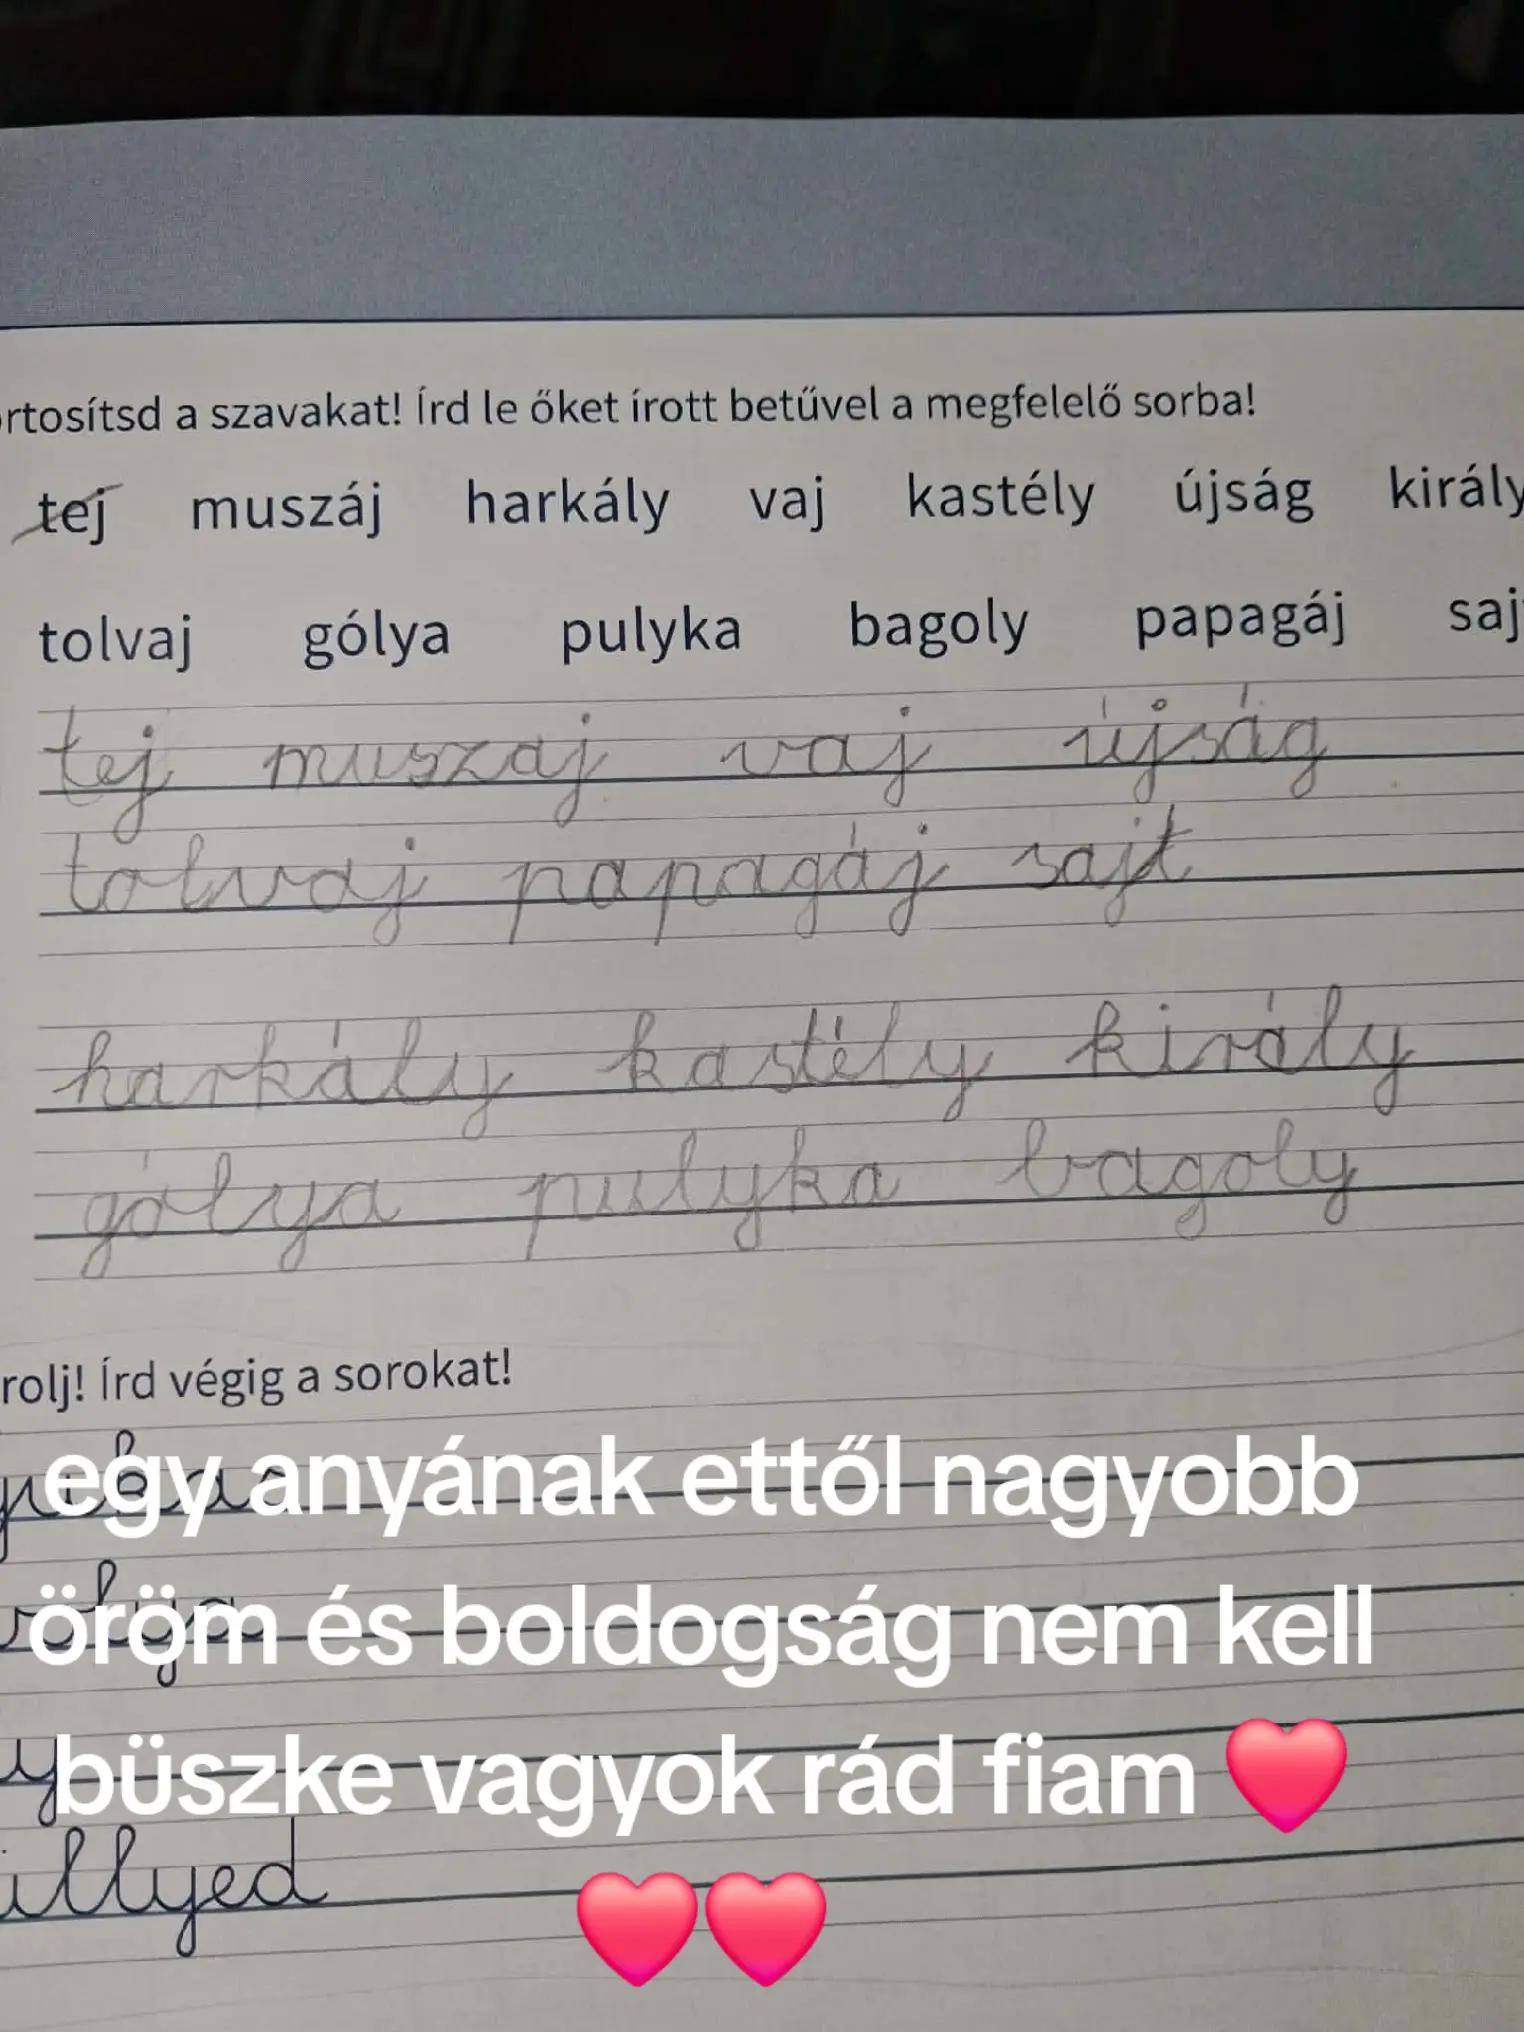 rtosítsd a szavakat! Írd le őket írott betűvel a megfelelő sorba!
tej muszáj harkály vaj kastély újság király
tolvaj gólya pulyka bagoly papagáj saj
tej muszaj vaj újság
tolvaj papagáj sajt
harkály kastély király
gólya pulyka bagoly
rolj! Írd végig a sorokat!
egy anyának ettől nagyobb
öröm és boldogság nem kell
büszke vagyok rád fiam ❤️
❤️❤️
illyed